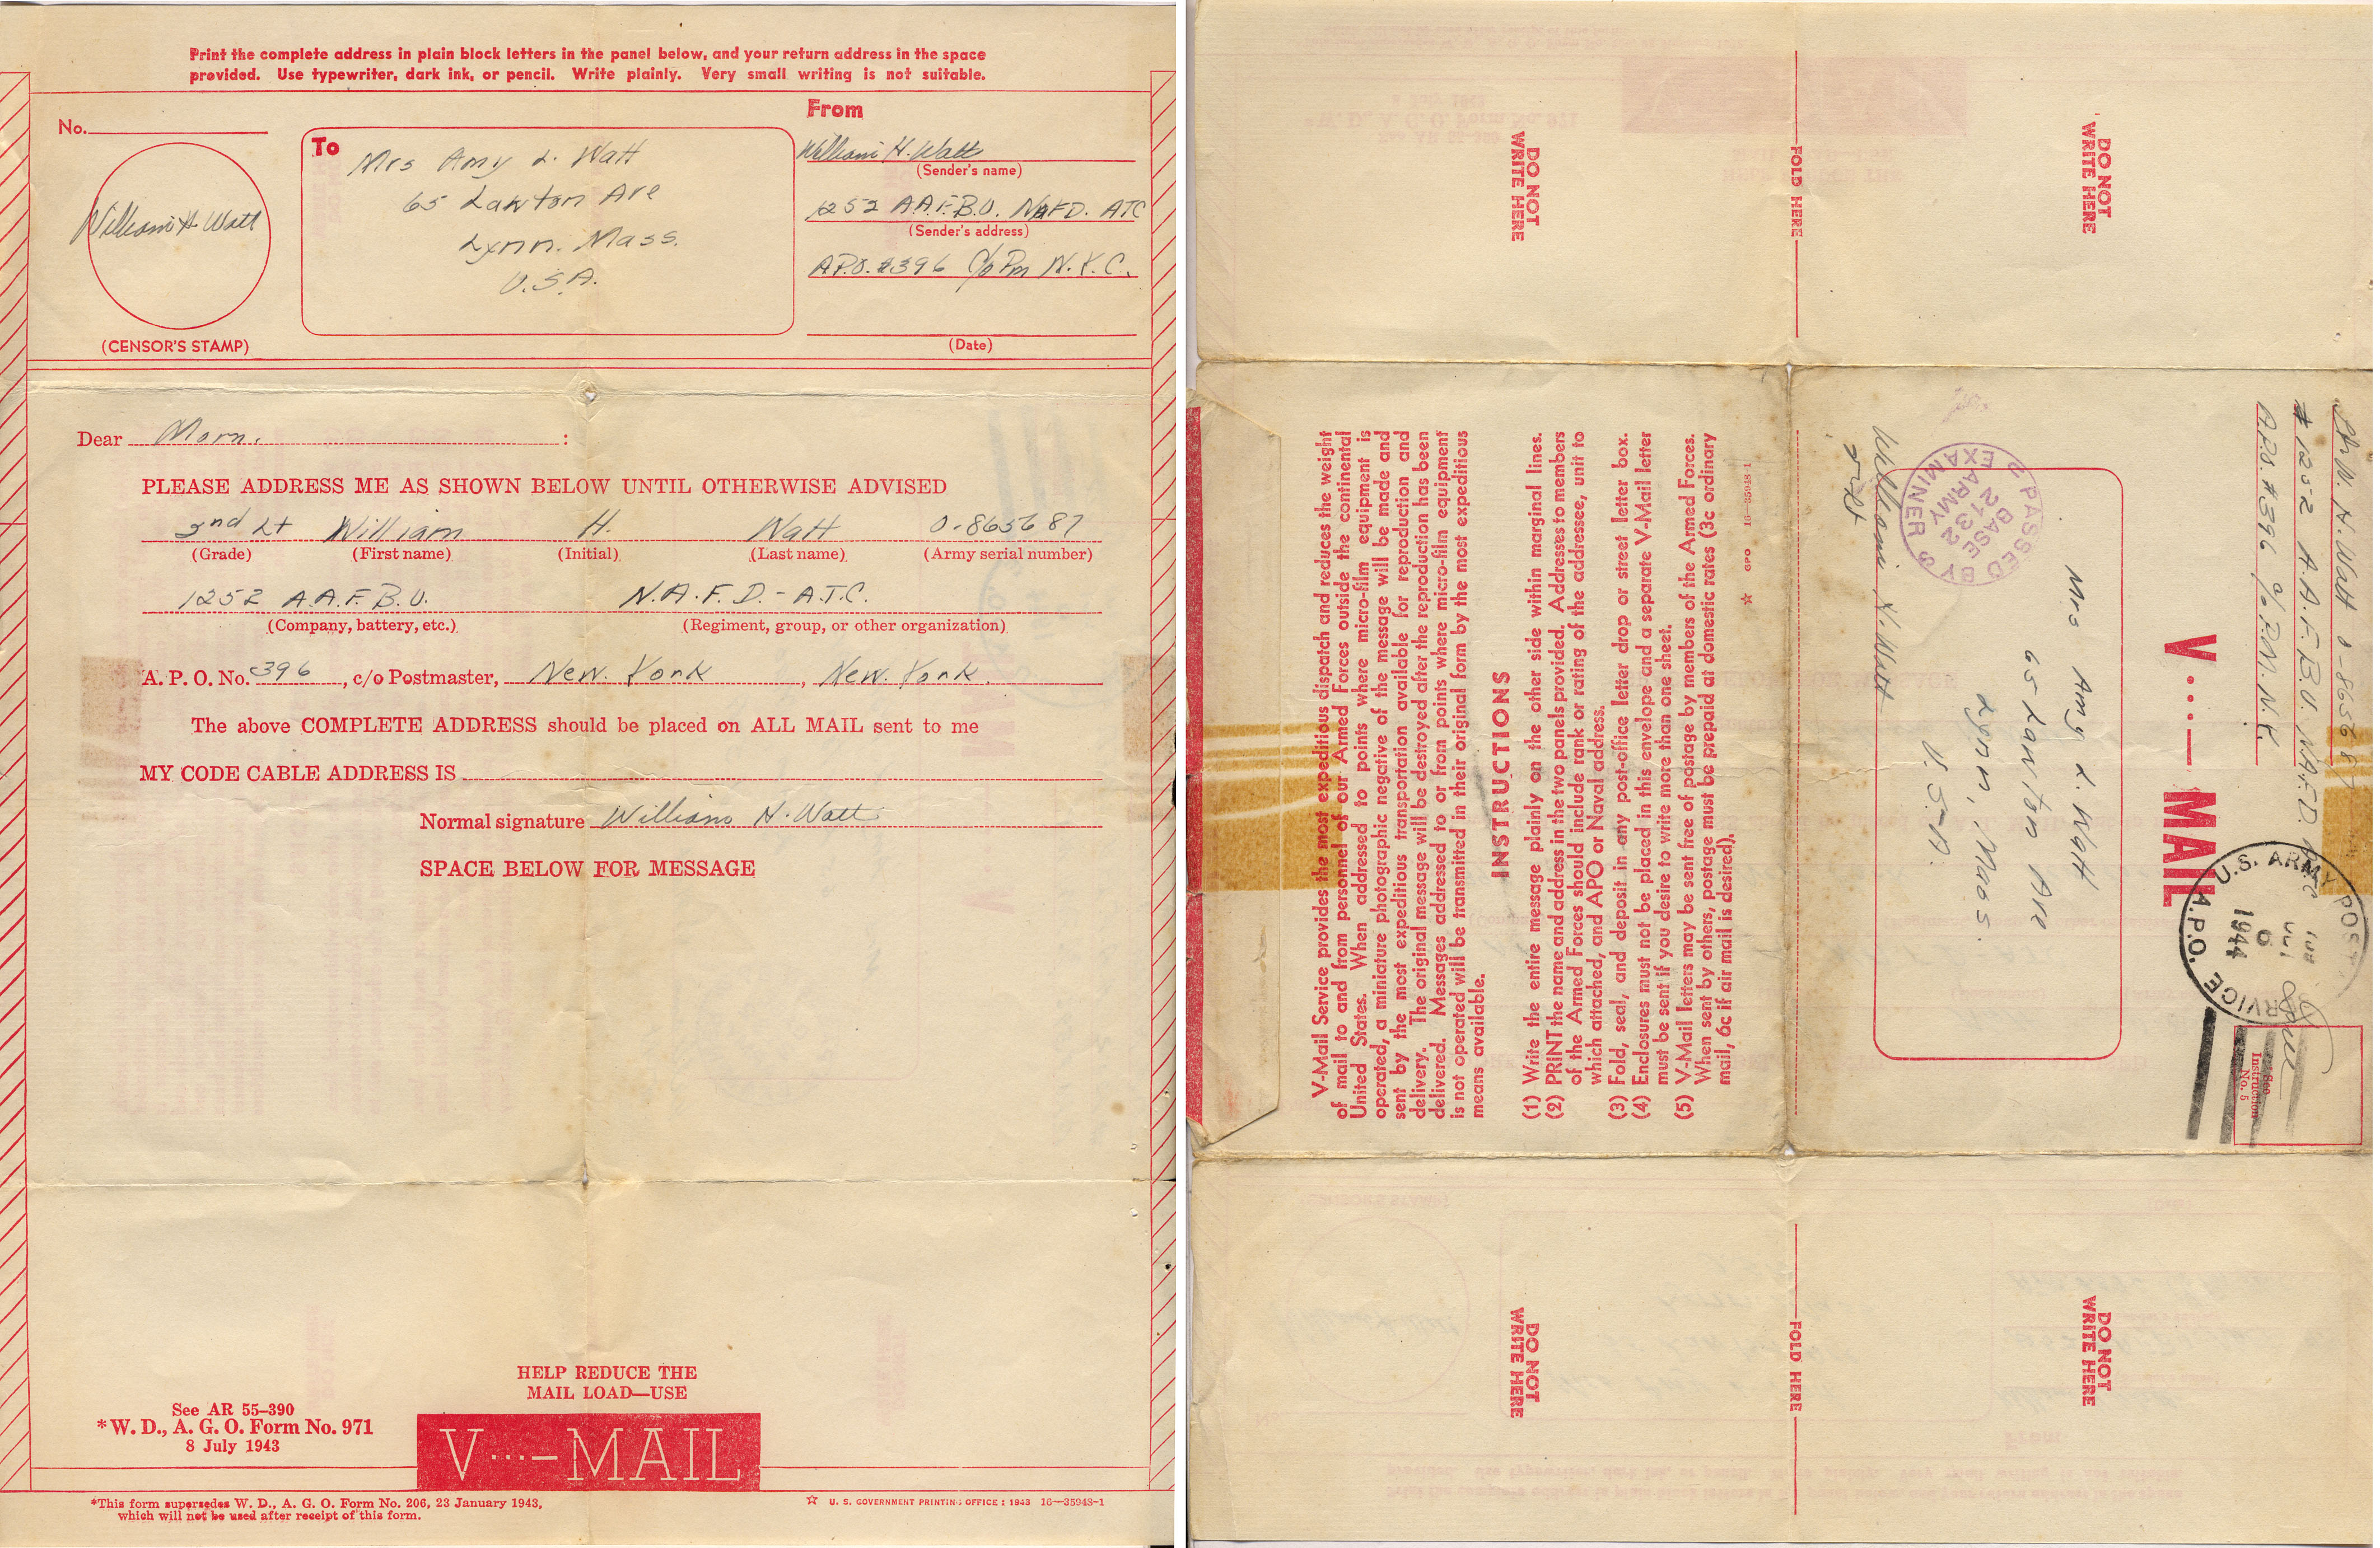 Print the complete address in plain block letters in the panel below, and your return address in the space
provided. Use typewriter, dark ink, or pencil. Write plainly. Very small writing is not suitable.
No.
William H. Watt
(CENSOR'S STAMP)
To
Mrs Amy L. Watt
65 Lawton Ave
Lynn. Mass.
U.S.A.
From
William H. Watt
(Sender's name)
1252 A.A.F.B.U. NAFD. ATC
(Sender's address)
A.P.O. #396 c/o Pm N.Y.C.
(Date)
Dear Mom. :
PLEASE ADDRESS ME AS SHOWN BELOW UNTIL OTHERWISE ADVISED
2nd Lt William H. Watt O-865687
(Grade) (First name) (Initial) (Last name) (Army serial number)
1252 A.A.F.B.U. N.A.F.D.-A.T.C.
(Company, battery, etc.) (Regiment, group, or other organization)
A. P. O. No. 396, c/o Postmaster, New York, New York.
The above COMPLETE ADDRESS should be placed on ALL MAIL sent to me
MY CODE CABLE ADDRESS IS
Normal signature William H. Watt
SPACE BELOW FOR MESSAGE
HELP REDUCE THE
MAIL LOAD—USE
V···—MAIL
See AR 55-390
*W. D., A. G. O. Form No. 971
8 July 1943
*This form supersedes W. D., A. G. O. Form No. 206, 23 January 1943,
which will not be used after receipt of this form.
☆ U. S. GOVERNMENT PRINTING OFFICE : 1943 16—35948-1
DO NOT
WRITE HERE
FOLD HERE
DO NOT
WRITE HERE
V-Mail Service provides the most expeditious dispatch and reduces the weight
of mail to and from personnel of our Armed Forces outside the continental
United States. When addressed to points where micro-film equipment is
operated, a miniature photographic negative of the message will be made and
sent by the most expeditious transportation available for reproduction and
delivery. The original message will be destroyed after the reproduction has been
delivered. Messages addressed to or from points where micro-film equipment
is not operated will be transmitted in their original form by the most expeditious
means available.
INSTRUCTIONS
(1) Write the entire message plainly on the other side within marginal lines.
(2) PRINT the name and address in the two panels provided. Addresses to members
of the Armed Forces should include rank or rating of the addressee, unit to
which attached, and APO or Naval address.
(3) Fold, seal, and deposit in any post-office letter drop or street letter box.
(4) Enclosures must not be placed in this envelope and a separate V-Mail letter
must be sent if you desire to write more than one sheet.
(5) V-Mail letters may be sent free of postage by members of the Armed Forces.
When sent by others, postage must be prepaid at domestic rates (3c ordinary
mail, 6c if air mail is desired).
★ GPO 16—35948-1
Lt W. H. Watt O-865687
#1252 A.A.F.B.U. N.A.F.D. ATC
A.P.O. #396 c/o P.M. N.Y.
V···—MAIL
U.S. ARMY POSTAL SERVICE
A.P.O.
6
1944
See
Instruction
No. 5
Mrs Amy L. Watt
65 Lawton Ave
Lynn, Mass.
U.S.A.
PASSED BY
BASE
2132
ARMY
EXAMINER
William H. Watt
DO NOT
WRITE HERE
FOLD HERE
DO NOT
WRITE HERE